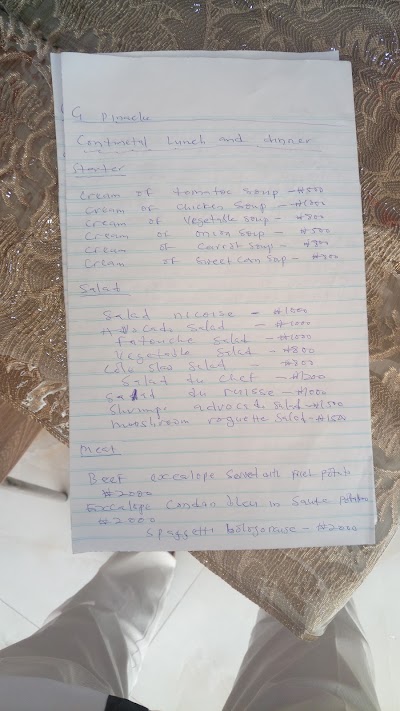 G Pinnacle
Continetal Lunch and dinner
Starter
Cream of tomatoe Soup - ₦500
Cream of Chicken Soup - ₦1000
Cream of Vegetable soup - ₦800
Cream of onion Soup - ₦500
Cream of Carrot Soup - ₦800
Cream of Sweet Corn Soup - ₦800
Salad
Salad nicoise - ₦1000
Avocado Salad - ₦1000
fatoushe Salad - ₦1000
Vegetable Salad - ₦800
Cole Slaw Salad - ₦800
Salad du Chef -
Salad du ruisse - ₦1000
Shrimps advocate Salad - ₦1500
mushroom roguette Salad - ₦1500
Meat
Beef excalope Served with potato
₦2000
Excalope in Saute potatoe
₦2000
Spaggetti bolognaise - ₦2000